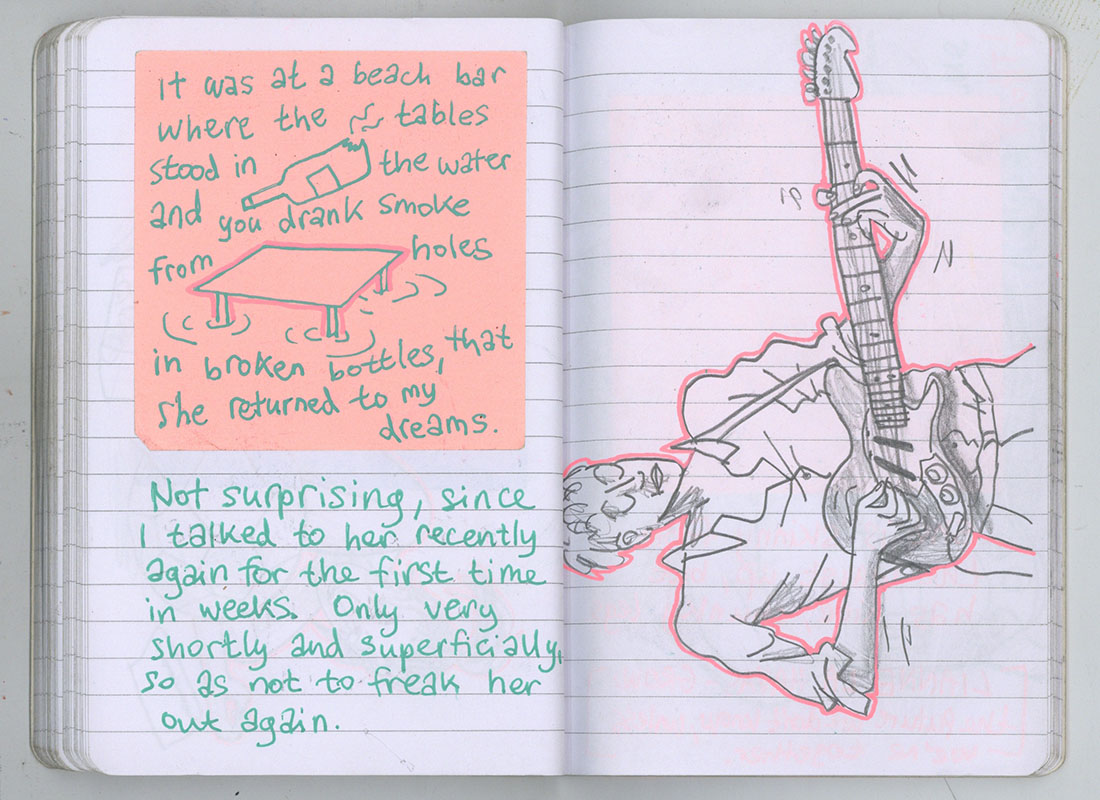 It was at a beach bar
where the tables
stood in the water
and you drank smoke
from holes
in broken bottles, that
she returned to my
dreams.
Not surprising, since
I talked to her recently
again for the first time
in weeks. Only very
shortly and superficially,
so as not to freak her
out again.